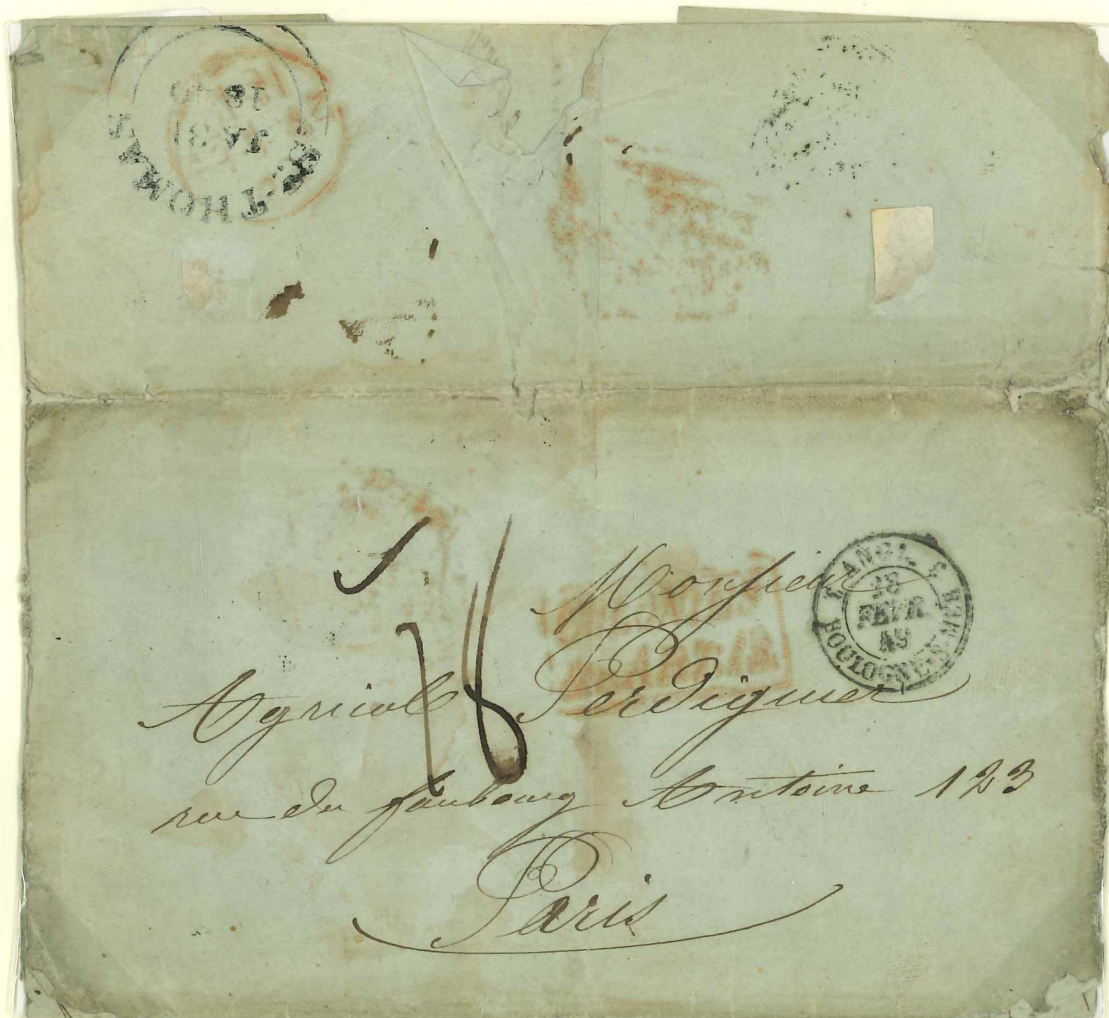 ST. THOMAS
JA 31
Monsieur
18
Agricol Perdiguier
rue du faubourg Antoine 123
Paris
ANGL.
28
FEVR.
49
BOULOGNE-S-MER